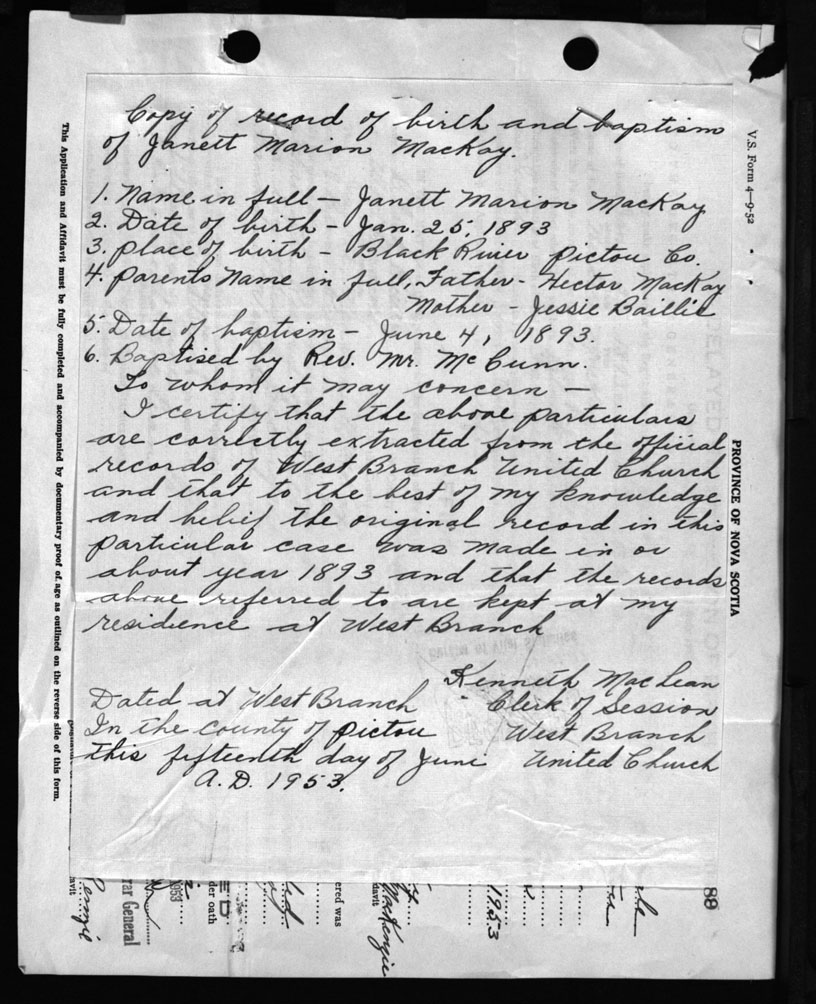 Copy of record of birth and baptism
of Janett Marion MacKay.
1. Name in full – Janett Marion MacKay
2. Date of birth – Jan. 25, 1893
3. place of birth – Black River Pictou Co.
4. parents Name in full, Father - Hector MacKay
Mother - Jessie Baillie
5. Date of baptism – June 4, 1893.
6. Baptised by Rev. Mr. McCunn.
To whom it may concern –
I certify that the above particulars
are correctly extracted from the official
records of West Branch United Church
and that to the best of my knowledge
and belief the original record in this
particular case was made in or
about year 1893 and that the records
above referred to are kept at my
residence at West Branch
Kenneth MacLean
Dated at West Branch Clerk of Session
In the county of Pictou West Branch
this fifteenth day of June United Church
A.D. 1953.
This Application and Affidavit must be fully completed and accompanied by documentary proof of age as outlined on the reverse side of this form.
V.S. Form 4—9-52
PROVINCE OF NOVA SCOTIA
89
1953
MacKenzie
davit
ered was
der oath
1953
rar General